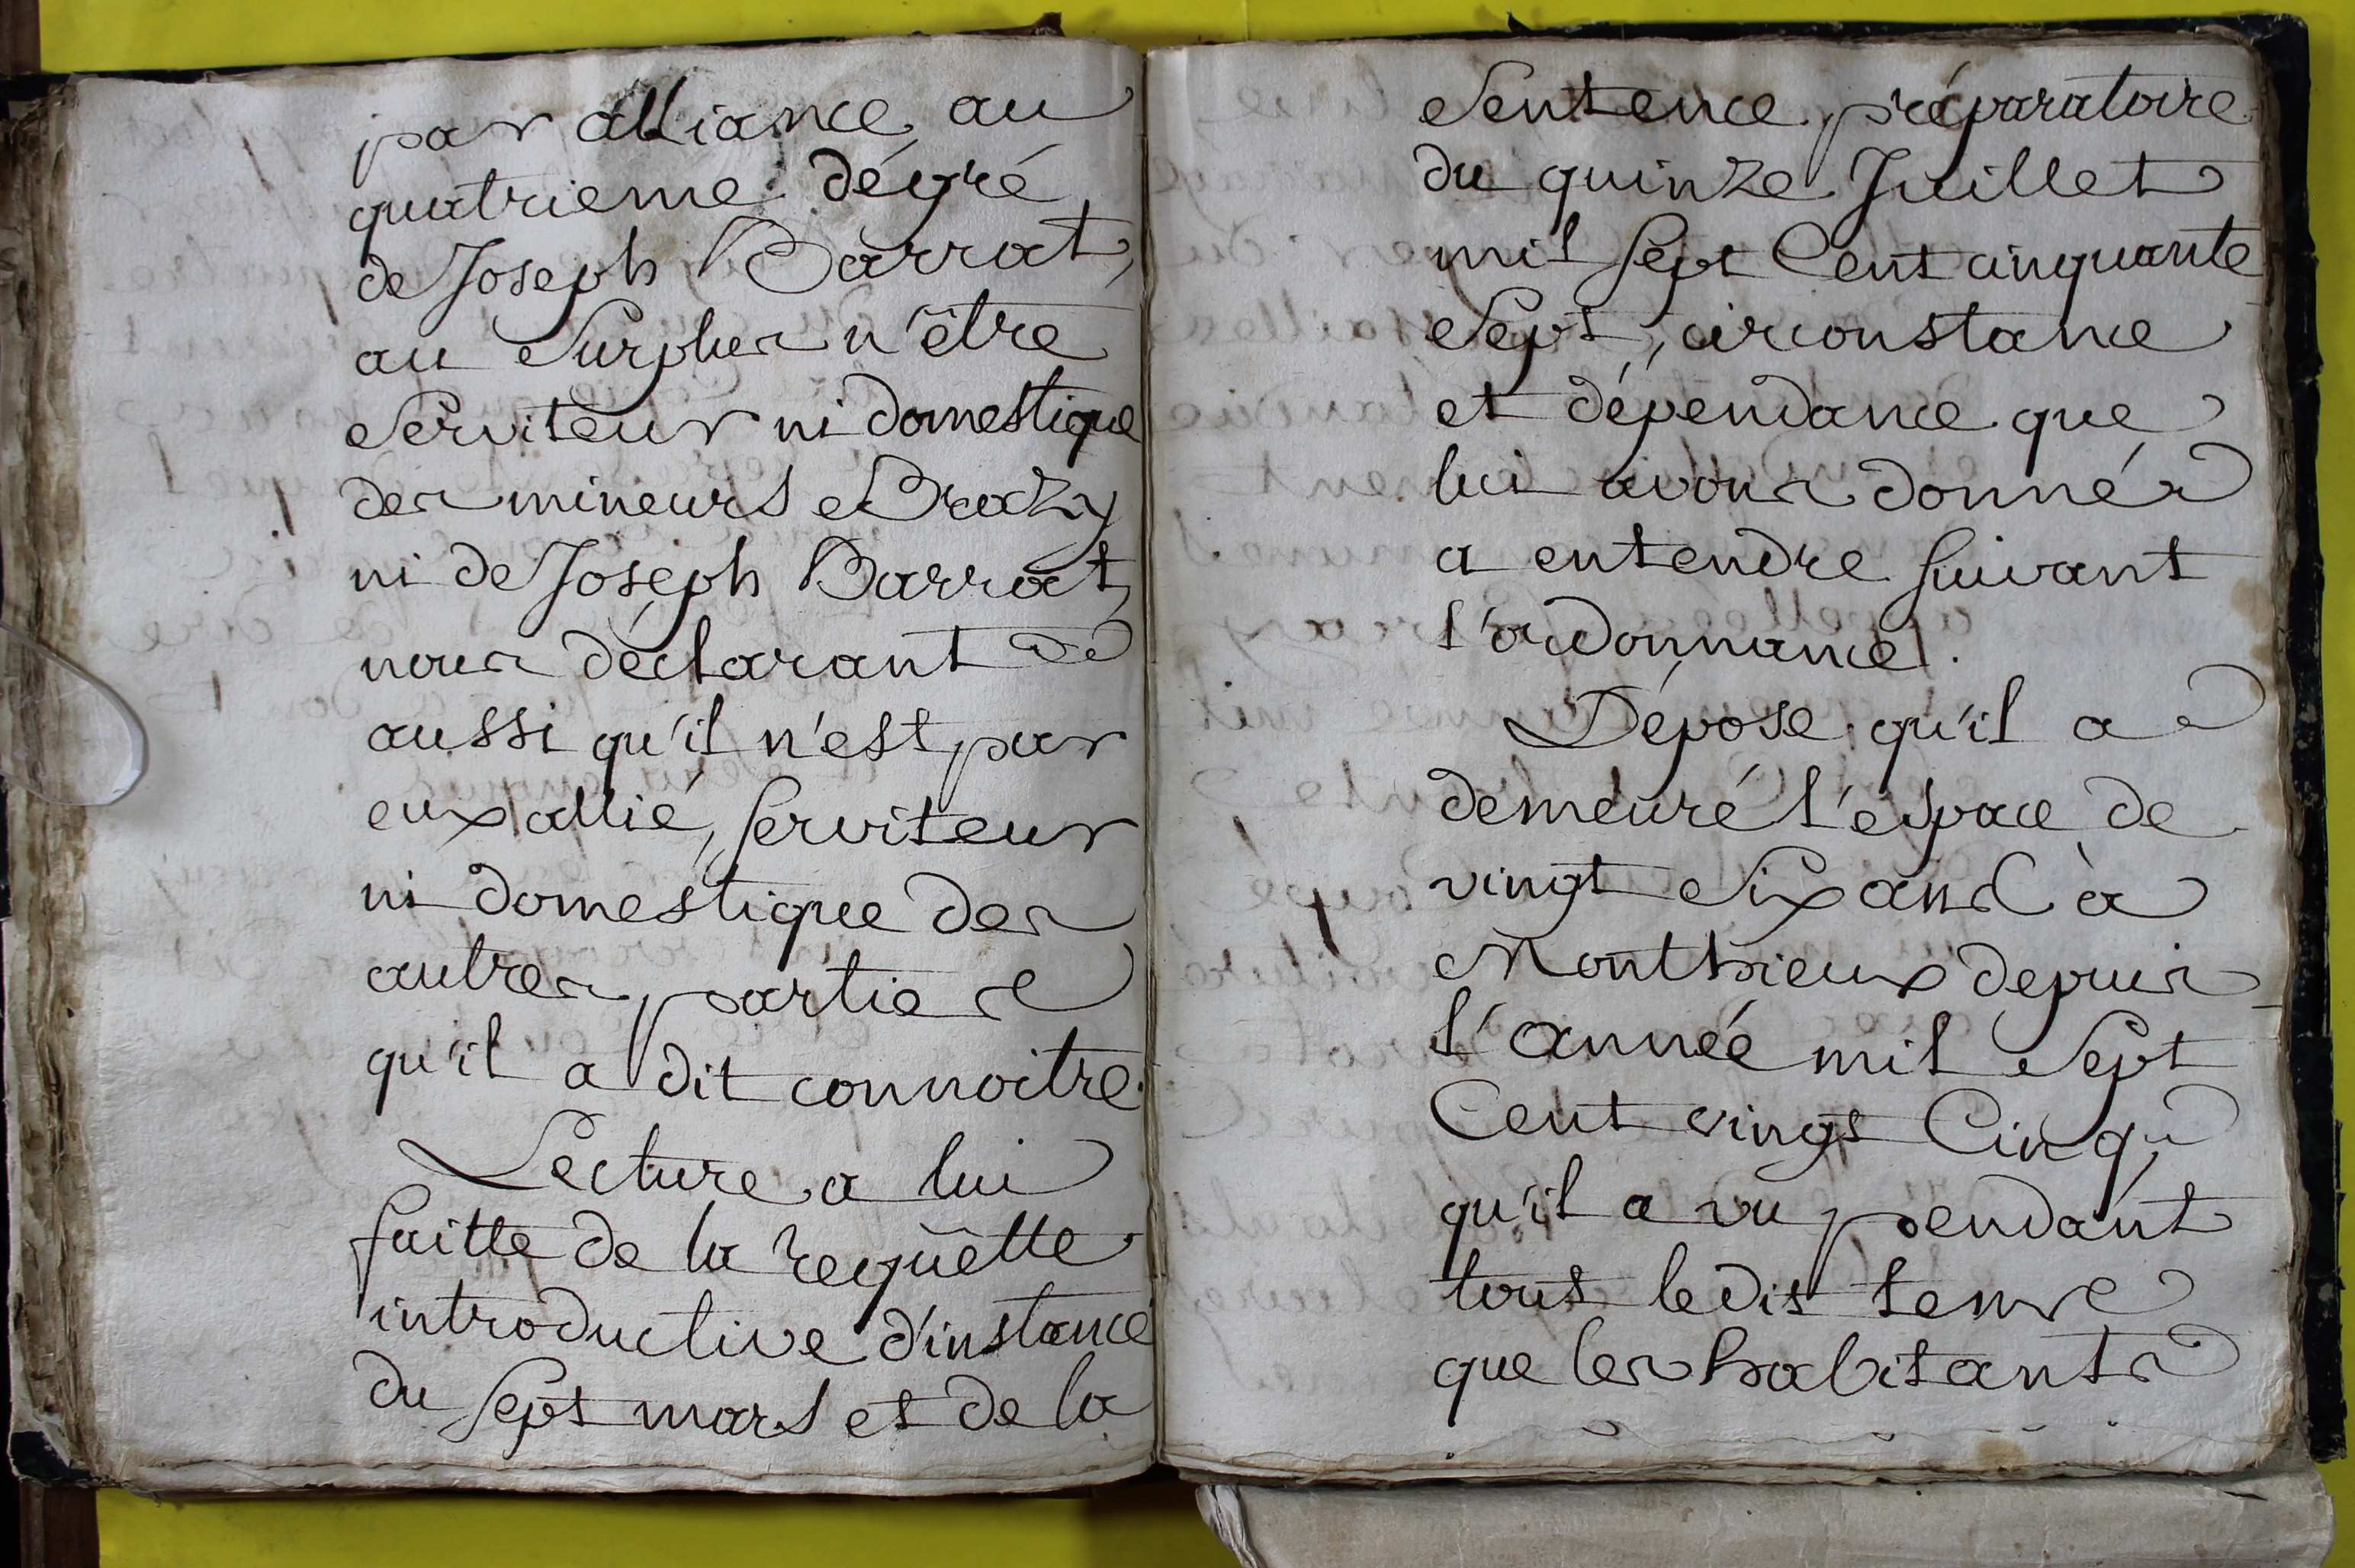 par alliance au
quatrieme dégré
de Joseph Barrat,
au Surplus n'être
Serviteur ni domestique
des mineurs Brazy
ni de Joseph Barrat,
nous déclarant
aussi qu'il n'est par
eux allié, serviteur
ni domestique des
autres parties
qu'il a dit connoitre.
Lecture a lui
faitte de la requêtte
introductive d'instance
du sept mars et de la
Sentence préparatoire
du quinze Juillet
mil sept Cent cinquante
Sept, circonstance
et dépendance que
lui avons donnés
a entendre suivant
l'ordonnance.
Dépose qu'il a
demeuré l'espace de
vingt Six ans à
Monthieux depuis
l'année mil Sept
Cent vingt Cinq,
qu'il a vu pendant
tout ledit tems
que les habitants